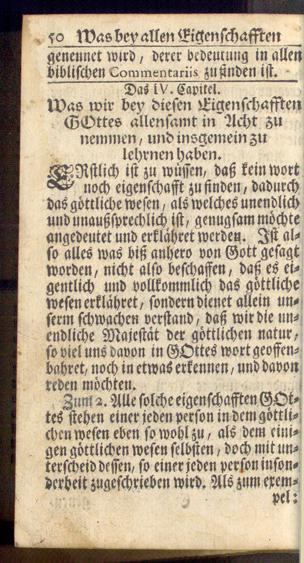 50 Was bey allen Eigenschafften
genennet wird, derer bedeutung in allen
biblischen Commentariis zu finden ist.
Das IV. Capitel.
Was wir bey diesen Eigenschafften
GOttes allensamt in Acht zu
nemmen, und insgemein zu
lehrnen haben.
ERstlich ist zu wüssen, daß kein wort
noch eigenschafft zu finden, dadurch
das göttliche wesen, als welches unendlich
und unaußsprechlich ist, genugsam möchte
angedeutet und erklähret werden. Ist al-
so alles was biß anhero von Gott gesagt
worden, nicht also beschaffen, daß es ei-
gentlich und vollkommlich das göttliche
wesen erklähret, sondern dienet allein un-
serm schwachen verstand, daß wir die un-
endliche Majestät der göttlichen natur,
so viel uns davon in GOttes wort geoffen-
bahret, noch in etwas erkennen, und davon
reden möchten.
Zum 2. Alle solche eigenschafften GOt-
tes stehen einer jeden person in dem göttli-
chen wesen eben so wohl zu, als dem eini-
gen göttlichen wesen selbsten, doch mit un-
terscheid dessen, so einer jeden person inson-
derheit zugeschrieben wird. Als zum exem-
pel: